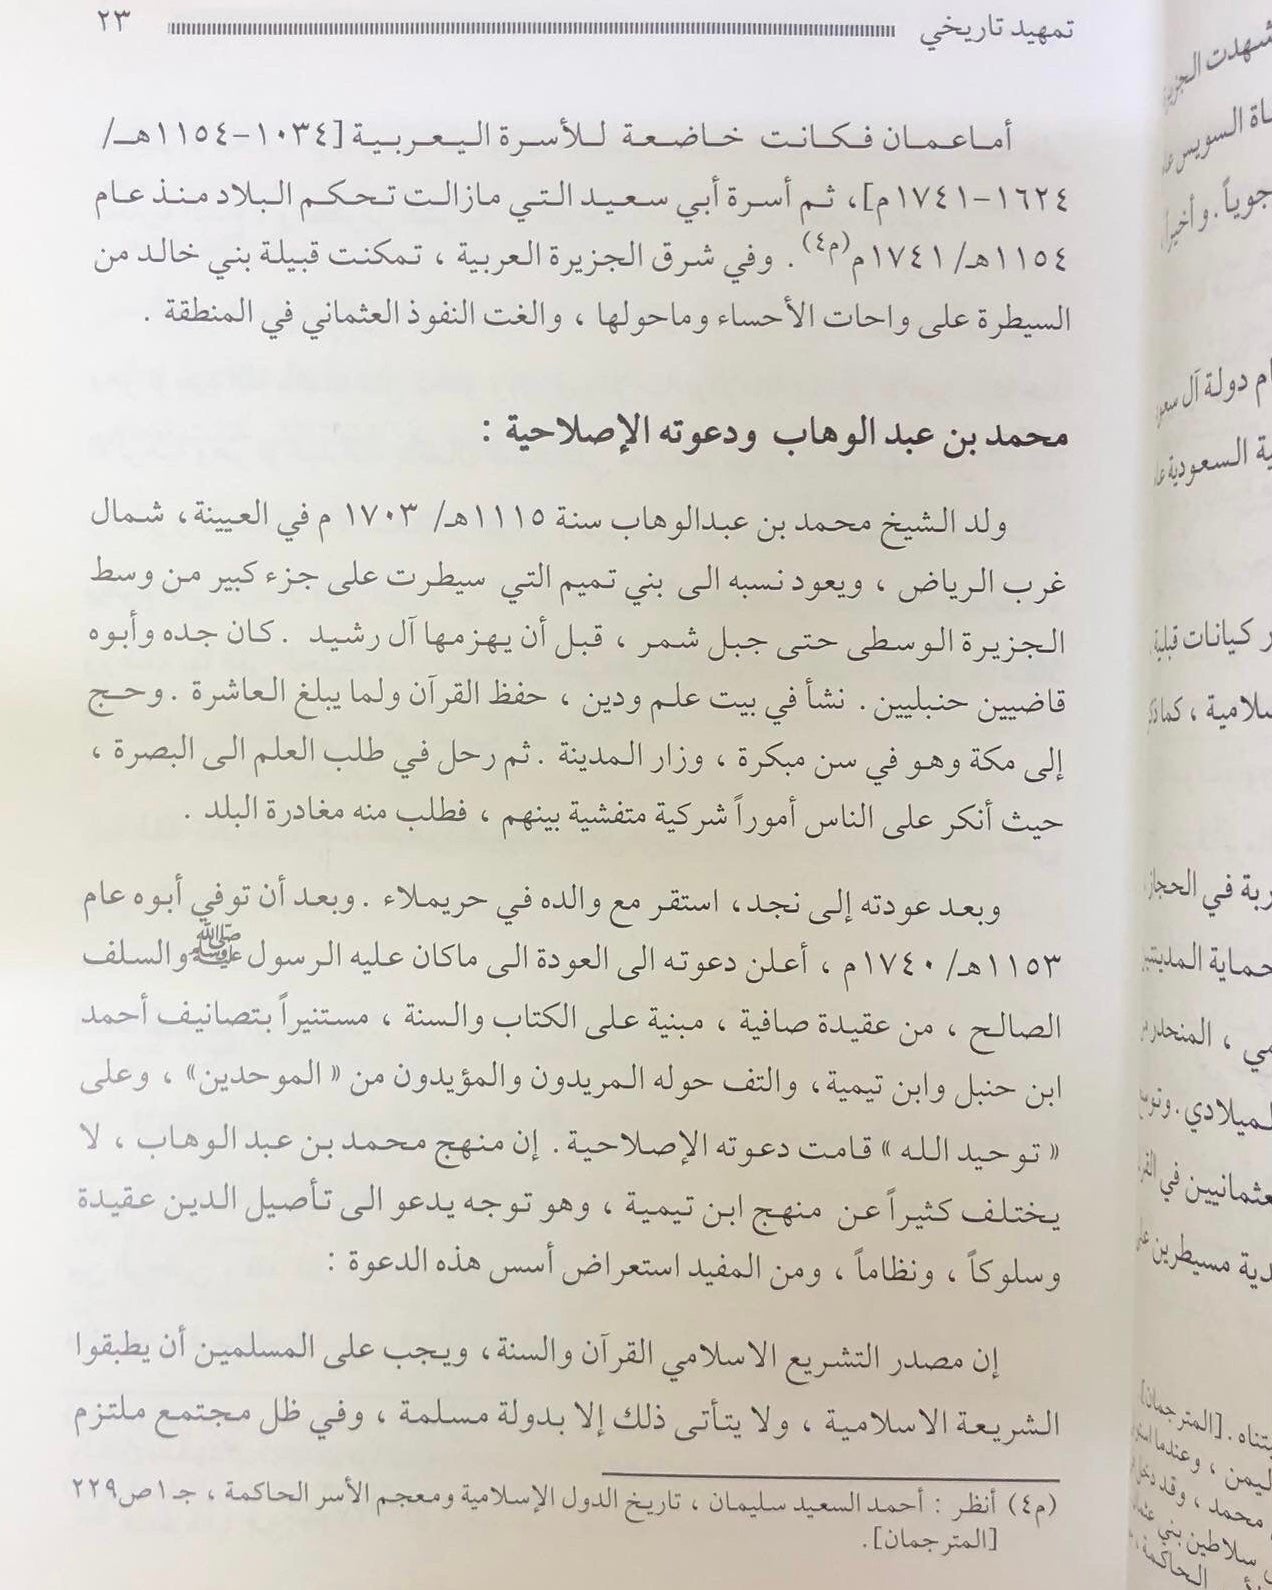 تمهيد تاريخي ٢٣
أما عمان فكانت خاضعة للأسرة اليعربية [١٠٣٤-١١٥٤هـ/
١٦٢٤-١٧٤١م]، ثم أسرة أبي سعيد التي مازالت تحكم البلاد منذ عام
١١٥٤هـ/١٧٤١م(م٤). وفي شرق الجزيرة العربية ، تمكنت قبيلة بني خالد من
السيطرة على واحات الأحساء وماحولها ، والغت النفوذ العثماني في المنطقة .
محمد بن عبد الوهاب ودعوته الإصلاحية :
ولد الشيخ محمد بن عبدالوهاب سنة ١١١٥هـ/ ١٧٠٣ م في العيينة، شمال
غرب الرياض ، ويعود نسبه الى بني تميم التي سيطرت على جزء كبير من وسط
الجزيرة الوسطى حتى جبل شمر ، قبل أن يهزمها آل رشيد . كان جده وأبوه
قاضيين حنبليين . نشأ في بيت علم ودين ، حفظ القرآن ولما يبلغ العاشرة . وحج
إلى مكة وهو في سن مبكرة ، وزار المدينة . ثم رحل في طلب العلم الى البصرة ،
حيث أنكر على الناس أموراً شركية متفشية بينهم ، فطلب منه مغادرة البلد .
وبعد عودته إلى نجد، استقر مع والده في حريملاء . وبعد أن توفي أبوه عام
١١٥٣هـ/ ١٧٤٠م ، أعلن دعوته الى العودة الى ماكان عليه الرسول ﷺ والسلف
الصالح ، من عقيدة صافية ، مبنية على الكتاب والسنة ، مستنيراً بتصانيف أحمد
ابن حنبل وابن تيمية، والتف حوله المريدون والمؤيدون من « الموحدين» ، وعلى
« توحيد الله » قامت دعوته الإصلاحية . إن منهج محمد بن عبد الوهاب ، لا
يختلف كثيراً عن منهج ابن تيمية ، وهو توجه يدعو الى تأصيل الدين عقيدة
وسلوكاً ، ونظاماً ، ومن المفيد استعراض أسس هذه الدعوة :
إن مصدر التشريع الاسلامي القرآن والسنة، ويجب على المسلمين أن يطبقوا
الشريعة الاسلامية ، ولا يتأتى ذلك إلا بدولة مسلمة ، وفي ظل مجتمع ملتزم
(م٤) أنظر : أحمد السعيد سليمان ، تاريخ الدول الإسلامية ومعجم الأسر الحاكمة ، جـ١ ص٢٢٩
[المترجمان].